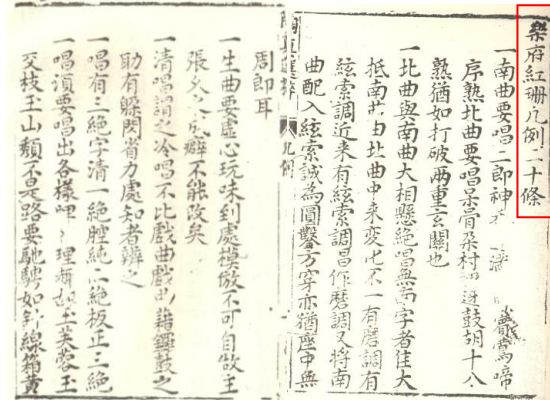 樂府紅珊凡例二十條
一南曲要唱二郎神
序熟北曲要唱呆骨朶村 迓鼓胡十八
熟猶如打破兩重玄關也
一北曲與南曲大相懸絶唱無南字者佳大
抵南 由北曲中来変化不一有磨調有
絃索調近来有絃索調唱作磨調又将南
曲配入絃索誠為圓鑿方穿亦猶座中無
凡例
周郎耳
一生曲要虚心玩味到處模倣不可自做主
張久之成癖不能改矣
一清唱謂之冷唱不比戲曲戲曲藉鑼鼓之
助有躲閃省力處知者辨之
一唱有三絶字清一絶腔純二絶板正三絶
一唱須要唱出各様 理 如玉芙蓉玉
交枝玉山頽不是路要馳騁如針線箱黄